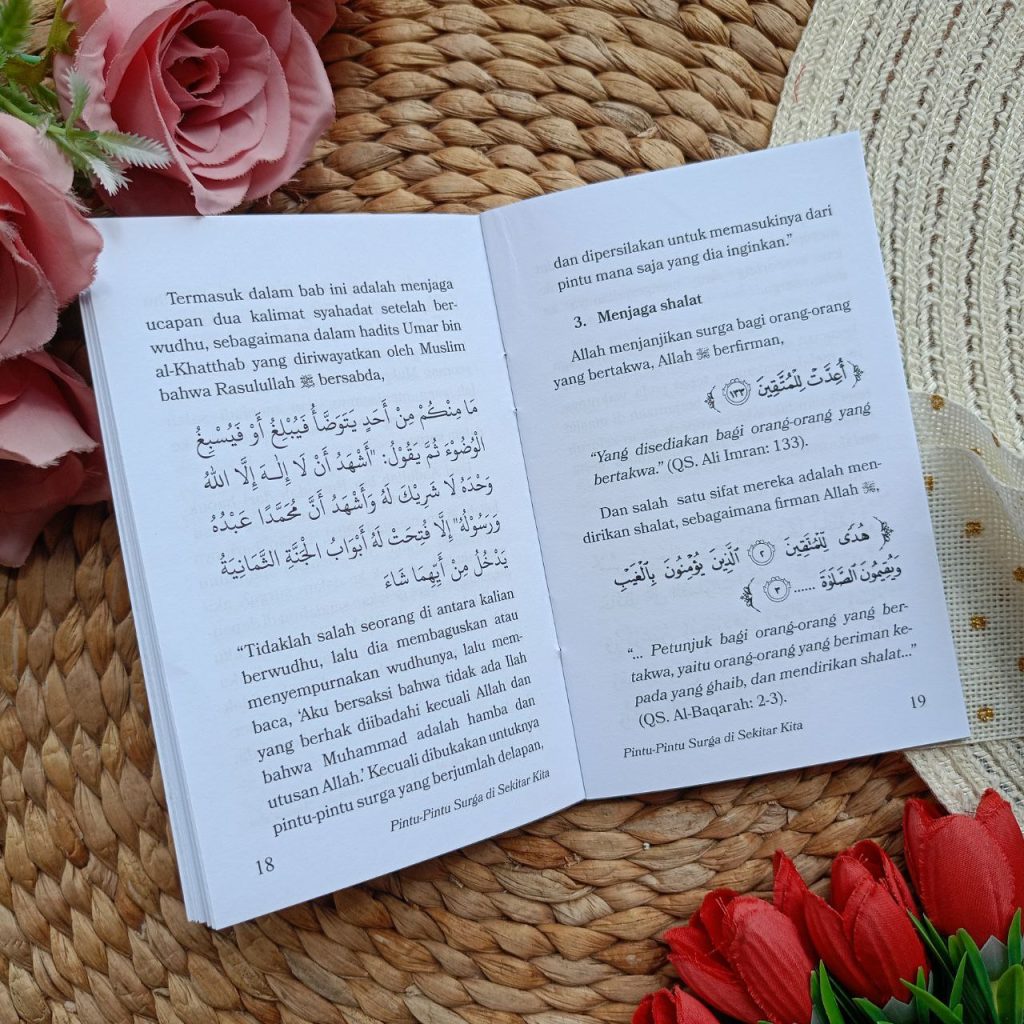 Termasuk dalam bab ini adalah menjaga
ucapan dua kalimat syahadat setelah ber-
wudhu, sebagaimana dalam hadits Umar bin
al-Khatthab yang diriwayatkan oleh Muslim
bahwa Rasulullah ﷺ bersabda,
مَا مِنْكُمْ مِنْ أَحَدٍ يَتَوَضَّأُ فَيُبْلِغُ أَوْ فَيُسْبِغُ
الْوُضُوْءَ ثُمَّ يَقُوْلُ: "أَشْهَدُ أَنْ لَا إِلَـهَ إِلَّا اللهُ
وَحْدَهُ لَا شَرِيْكَ لَهُ وَأَشْهَدُ أَنَّ مُحَمَّدًا عَبْدُهُ
وَرَسُوْلُهُ" إِلَّا فُتِحَتْ لَهُ أَبْوَابُ الْجَنَّةِ الثَّمَانِيَةُ
يَدْخُلُ مِنْ أَيِّهِمَا شَاءَ
“Tidaklah salah seorang di antara kalian
berwudhu, lalu dia membaguskan atau
menyempurnakan wudhunya, lalu mem-
baca, ‘Aku bersaksi bahwa tidak ada Ilah
yang berhak diibadahi kecuali Allah dan
bahwa Muhammad adalah hamba dan
utusan Allah.’ Kecuali dibukakan untuknya
pintu-pintu surga yang berjumlah delapan,
Pintu-Pintu Surga di Sekitar Kita
18
dan dipersilakan untuk memasukinya dari
pintu mana saja yang dia inginkan.”
3. Menjaga shalat
Allah menjanjikan surga bagi orang-orang
yang bertakwa, Allah ﷻ berfirman,
﴿ أُعِدَّتْ لِلْمُتَّقِينَ ١٣٣ ﴾
“Yang disediakan bagi orang-orang yang
bertakwa.” (QS. Ali Imran: 133).
Dan salah satu sifat mereka adalah men-
dirikan shalat, sebagaimana firman Allah ﷻ,
﴿ هُدًى لِلْمُتَّقِينَ ٢ الَّذِينَ يُؤْمِنُونَ بِالْغَيْبِ
وَيُقِيمُونَ الصَّلَوٰةَ ...... ٣ ﴾
“... Petunjuk bagi orang-orang yang ber-
takwa, yaitu orang-orang yang beriman ke-
pada yang ghaib, dan mendirikan shalat...”
(QS. Al-Baqarah: 2-3).
19
Pintu-Pintu Surga di Sekitar Kita